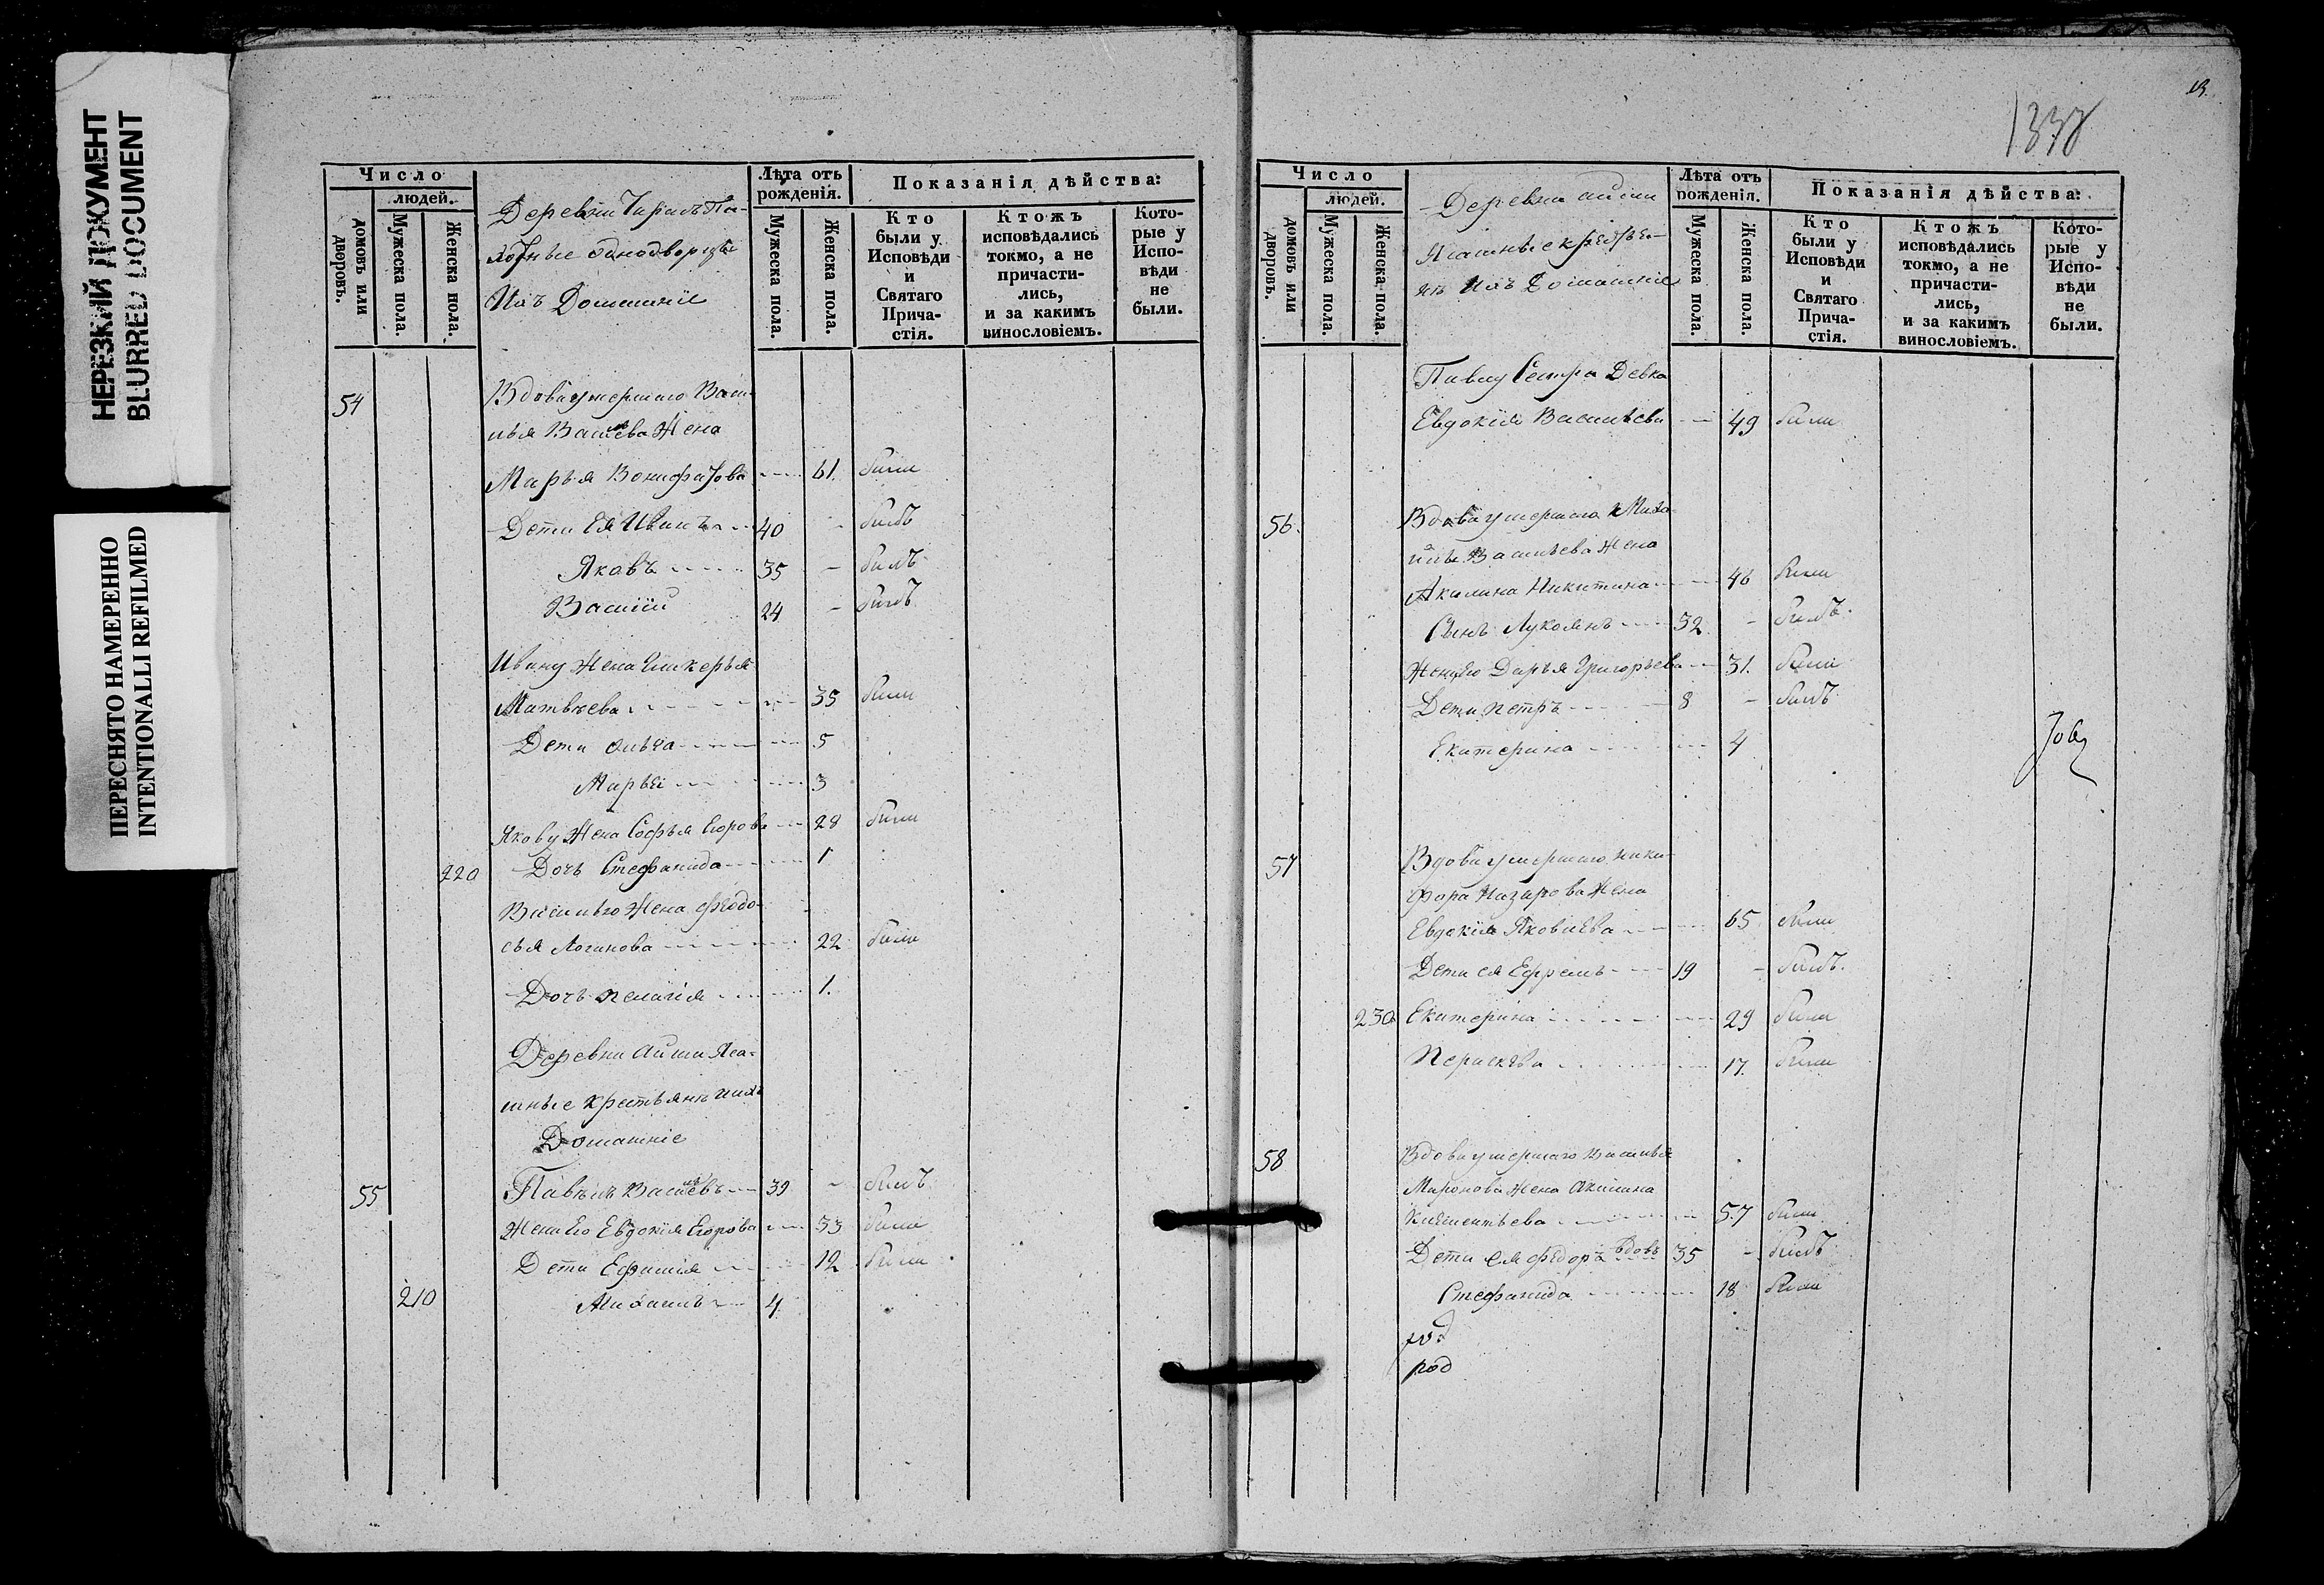 НЕРЕЗКИЙ ДОКУМЕНТ
BLURRED DOCUMENT
ПЕРЕСНЯТО НАМЕРЕННО
INTENTIONALLI REFILMED
Число
людей.
домовъ или дворовъ.
Мужеска пола.
Женска пола.
Деревни
однодворцы
Ихъ Домашніе
Лѣта отъ рожденія.
Мужеска пола.
Женска пола.
Показанія дѣйства:
Кто были у Исповѣди и Святаго Прича-стія.
Ктожъ исповѣдались токмо, а не причасти-лись, и за какимъ винословіемъ.
Кото-рые у Испо-вѣди не были.
54 Вдова умершаго Васи-
лья Васильева Жена
Марья Вонифатова 61. была
Дети Ея Иванъ 40 - былъ
Яковъ 35 - былъ
Василій 24 - былъ
Ивану Жена Гликерья
Матвѣева 35 была
Дети 5
Марья 3
Якову Жена Софья Егорова 28 была
220 Дочь Стефанида 1
Василью Жена Феодо-
сья Логинова 22 была
Дочь пелагія 1.
Деревни Айши Яса-
шные крестьяне ихъ
Домашніе
55 Павелъ Васильевъ 39 - былъ
Жена Его Евдокія Егорова 33 была
Дети Ефимія 12 была
210 Михаилъ 4
13.
1338
Число
людей.
домовъ или дворовъ.
Мужеска пола.
Женска пола.
Деревни айши
Ясашные крестья-
не Ихъ Домашніе
Лѣта отъ рожденія.
Мужеска пола.
Женска пола.
Показанія дѣйства:
Кто были у Исповѣди и Святаго Прича-стія.
Ктожъ исповѣдались токмо, а не причасти-лись, и за какимъ винословіемъ.
Кото-рые у Испо-вѣди не были.
Павлу Сестра Девка
Евдокія Васильева 49 была
56. Вдова умершаго Миха-
йлы Васильева Жена
Акилина Никитина 46 была
Сынъ Лукоянъ 32 - былъ.
Жена Его Дарья Григорьева 31. была
Дети петръ 8 - былъ
Екатерина 4
57 Вдова умершаго ники-
фора Назарова Жена
Евдокія Яковлева 65 была
Дети ея Ефремъ 19 - былъ.
230 Екатерина 29 была
Перасковья 17. была
58 Вдова умершаго василья
Миронова Жена Акилина
Климентьева 57 была
Дети ея Федоръ вдовъ 35 - былъ
Стефанида 18 была
род
род